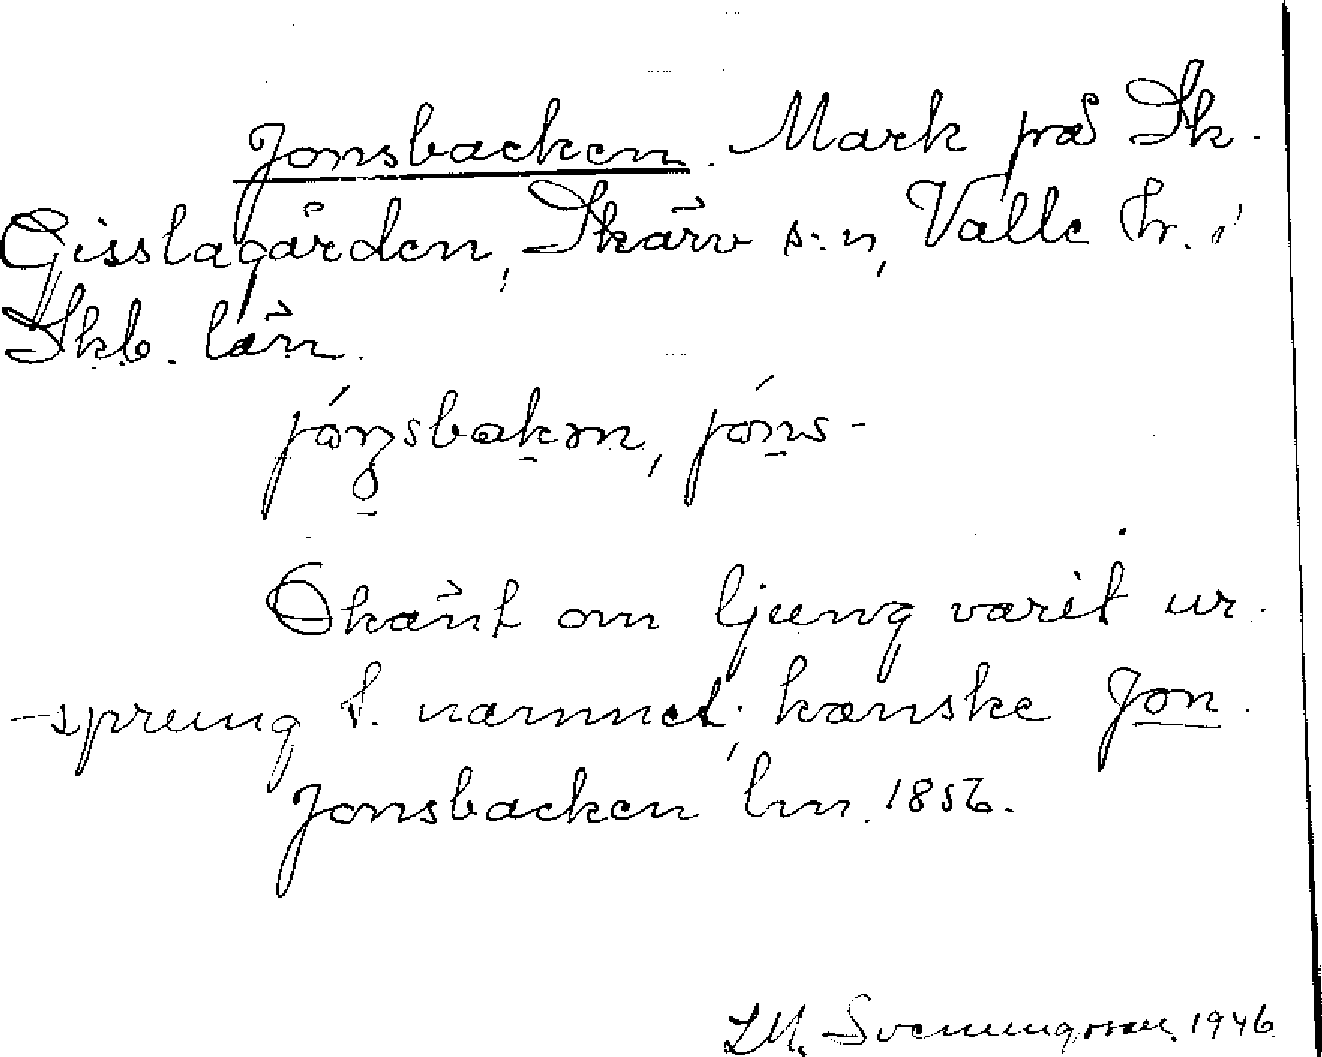 Jonsbacken. Mark på Sk.
Gisslagården, Skärv s:n, Valle hr. i
Skb. län.
jónsbakən, jóns-
Okänt om ljung varit ur-
-sprung t. namnet, kanske Jon.
Jonsbacken lm. 1856.
Svenungsson 1946